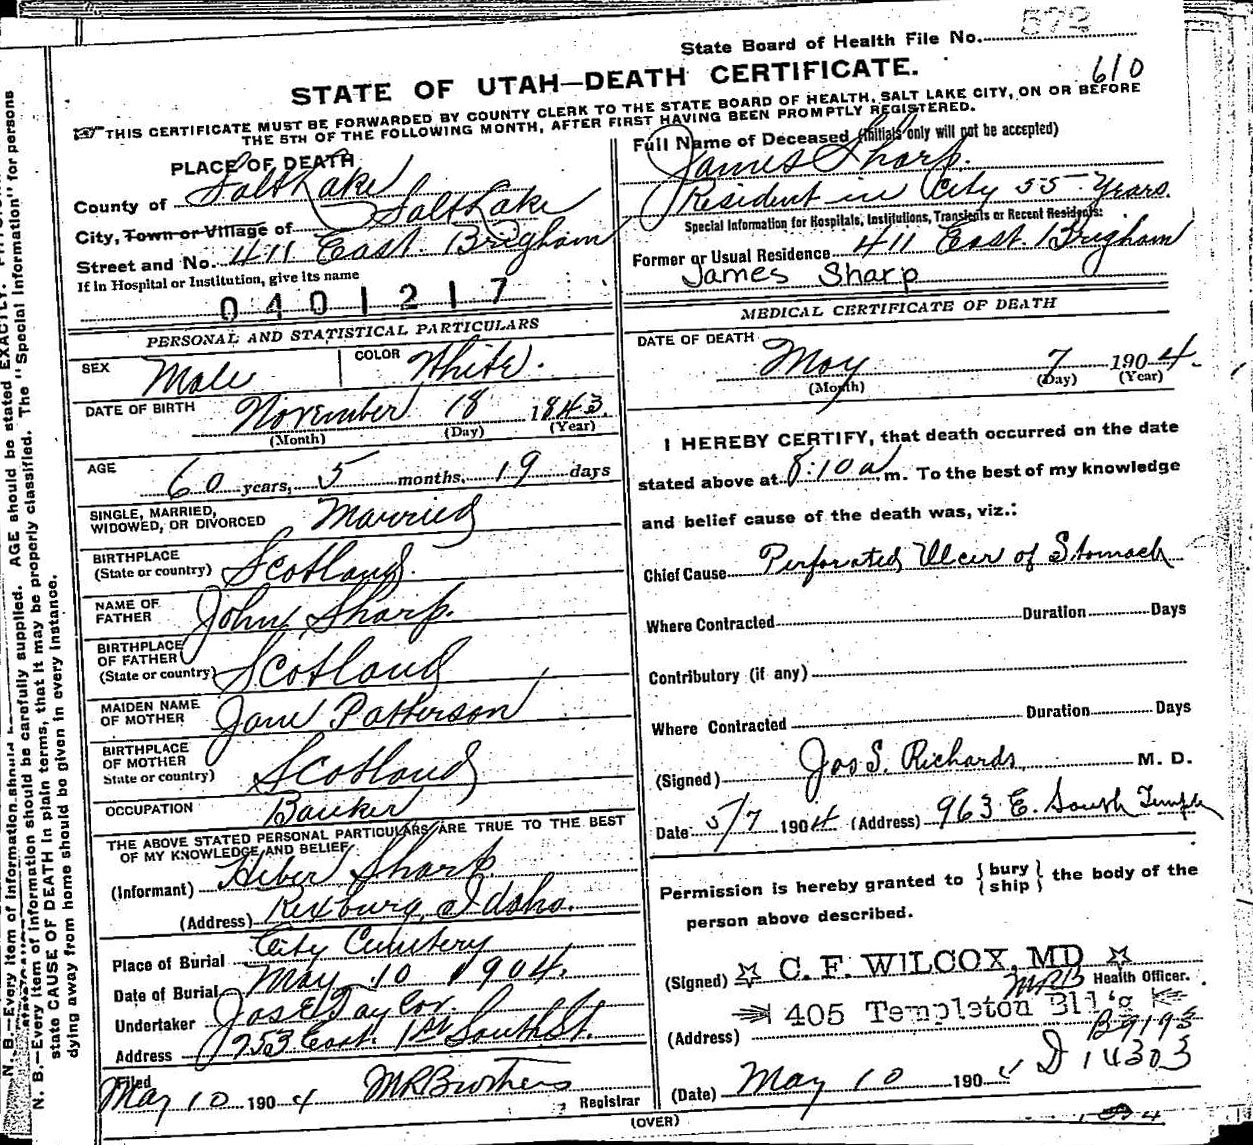 572
State Board of Health File No.
STATE OF UTAH—DEATH CERTIFICATE.
610
THIS CERTIFICATE MUST BE FORWARDED BY COUNTY CLERK TO THE STATE BOARD OF HEALTH, SALT LAKE CITY, ON OR BEFORE
THE 5TH OF THE FOLLOWING MONTH, AFTER FIRST HAVING BEEN PROMPTLY REGISTERED.
PLACE OF DEATH
County of Salt Lake
City, Town or Village of Salt Lake
Street and No. 411 East Brigham
If in Hospital or Institution, give its name
0401217
Full Name of Deceased (Initials only will not be accepted)
James Sharp.
Resident in City 55 Years.
Special Information for Hospitals, Institutions, Transients or Recent Residents:
Former or Usual Residence 411 East Brigham
James Sharp
PERSONAL AND STATISTICAL PARTICULARS
SEX Male COLOR White.
DATE OF BIRTH November 18 1843.
(Month) (Day) (Year)
AGE 60 years, 5 months, 19 days
SINGLE, MARRIED,
WIDOWED, OR DIVORCED Married
BIRTHPLACE
(State or country) Scotland.
NAME OF
FATHER John Sharp.
BIRTHPLACE
OF FATHER
(State or country) Scotland
MAIDEN NAME
OF MOTHER Jane Patterson
BIRTHPLACE
OF MOTHER
State or country) Scotland
OCCUPATION Banker
THE ABOVE STATED PERSONAL PARTICULARS ARE TRUE TO THE BEST
OF MY KNOWLEDGE AND BELIEF
(Informant) Heber Sharp
(Address) Rexburg, Idaho.
Place of Burial City Cemetery
Date of Burial May 10 1904.
Undertaker Jos E Taylor
Address 253 East 1st South St.
Filed
May 10 1904 Registrar
MEDICAL CERTIFICATE OF DEATH
DATE OF DEATH May 7 1904.
(Month) (Day) (Year)
I HEREBY CERTIFY, that death occurred on the date
stated above at 8:10 a m. To the best of my knowledge
and belief cause of the death was, viz.:
Chief Cause Perforated Ulcer of Stomach
Where Contracted Duration Days
Contributory (if any)
Where Contracted Duration Days
(Signed) Jos S. Richards M. D.
Date 5/7 1904 (Address) 963 E. South Temple
Permission is hereby granted to { bury } the body of the
{ ship }
person above described.
(Signed) ☆ C. F. WILCOX, MD ☆
MRB Health Officer.
(Address) 405 Templeton Bll'g
B9193
D 14303
(Date) May 10 1904
(OVER)
N. B.—Every item of information should be carefully supplied. AGE should be stated EXACTLY.
state CAUSE OF DEATH in plain terms, that it may be properly classified. The "Special Information" for persons
dying away from home should be given in every instance.